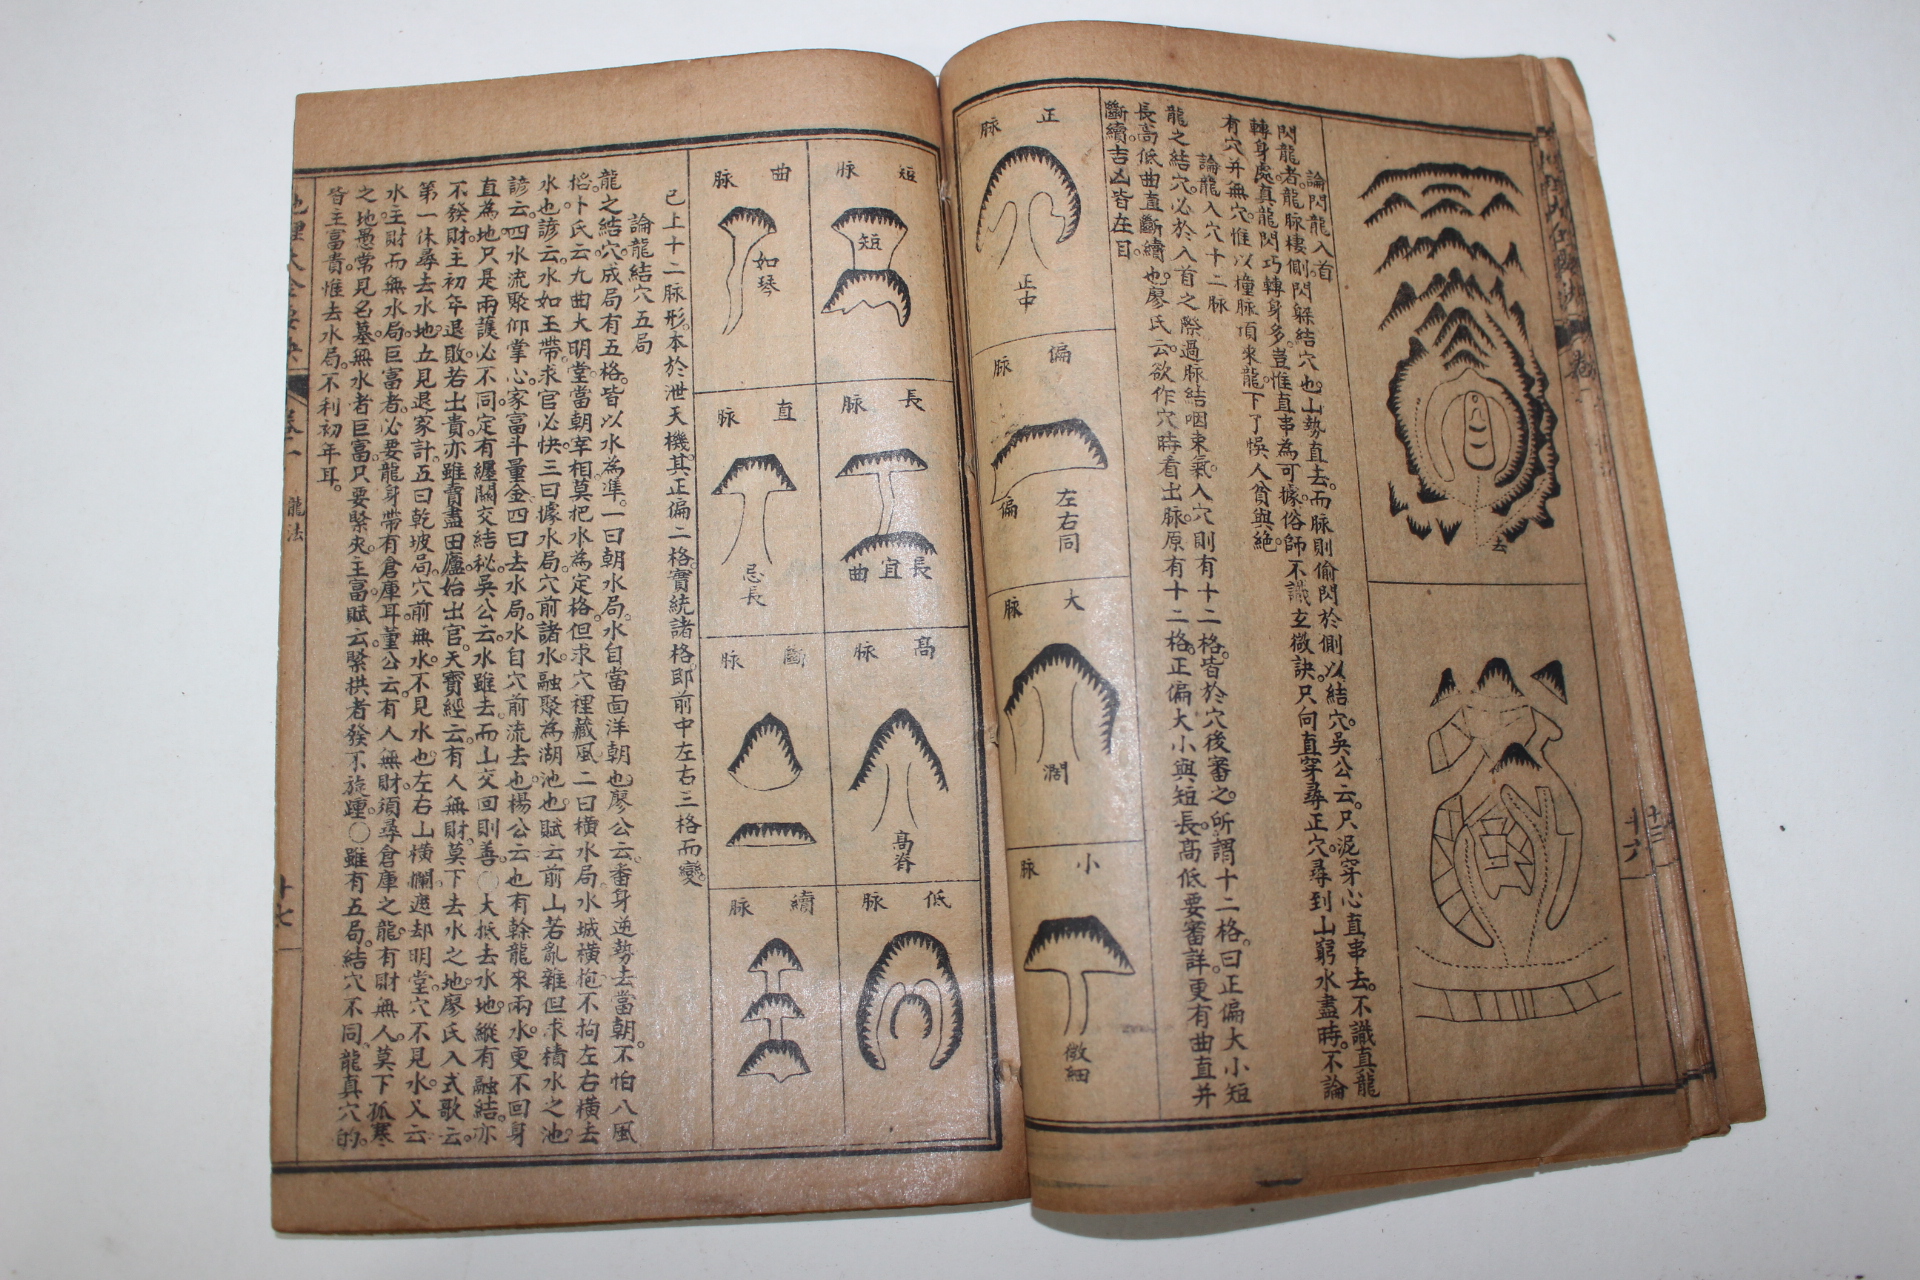 去
論閃龍入首
閃龍者龍脉棲側閃躲結穴也山勢直去而脉則偷閃於側以結穴吳公云只泥穿心直串去不識真龍
轉身處真龍閃巧轉身多豈惟直串為可據俗師不識玄微訣只向直穿尋正穴尋到山窮水盡時不論
有穴并無穴惟以撞脉頂來龍下了悞人貧與絶
論龍入穴十二脉
龍之結穴必於入首之際過脉結咽束氣入穴則有十二格皆於穴後審之所謂十二格曰正偏大小短
長高低曲直斷續也廖氏云欲作穴時看出脉原有十二格正偏大小與短長高低要審詳更有曲直并
斷續吉凶皆在目
正脉
正中
偏脉
左右同
偏
大脉
濶
小脉
微細
短脉
短
長脉
長宜曲
高脉
高脊
低脉
曲脉
如琴
直脉
忌長
斷脉
續脉
已上十二脉形本於泄天機其正偏二格實統諸格即前中左右三格而變
論龍結穴五局
龍之結穴成局有五格皆以水為準一曰朝水局水自當面洋朝也廖公云番身逆勢去當朝不怕八風
搖卜氏云九曲大明堂當朝宰相莫把水為定格但求穴裡藏風二曰橫水局水城橫抱不拘左右橫去
水也諺云水如玉帶求官必快三曰據水局穴前諸水融聚為湖池也賦云前山若亂雜但求積水之池
諺云四水流聚仰掌心家富斗量金四曰去水局水自穴前流去也楊公云也有幹龍來兩水更不回身
直為地只是兩護必不同定有纒關交結秘吳公云水雖去而山交回則善○大抵去水地縱有融結亦
不發財主初年退敗若出貴亦雖賣盡田廬始出官天寶經云有人無財莫下去水之地廖氏入式歌云
第一休尋去水地立見退家計五曰乾坡局穴前無水不見水也左右山橫攔遮却明堂穴不見水乂云
水主財而無水局巨富者必要龍身帶有倉庫耳董公云有人無財須尋倉庫之龍有財無人莫下孤寒
之地愚常見名墓無水者巨富只要緊夾主富賦云緊拱者發不旋踵○雖有五局結穴不同龍真穴的
皆主富貴惟去水局不利初年耳
龍法
十七